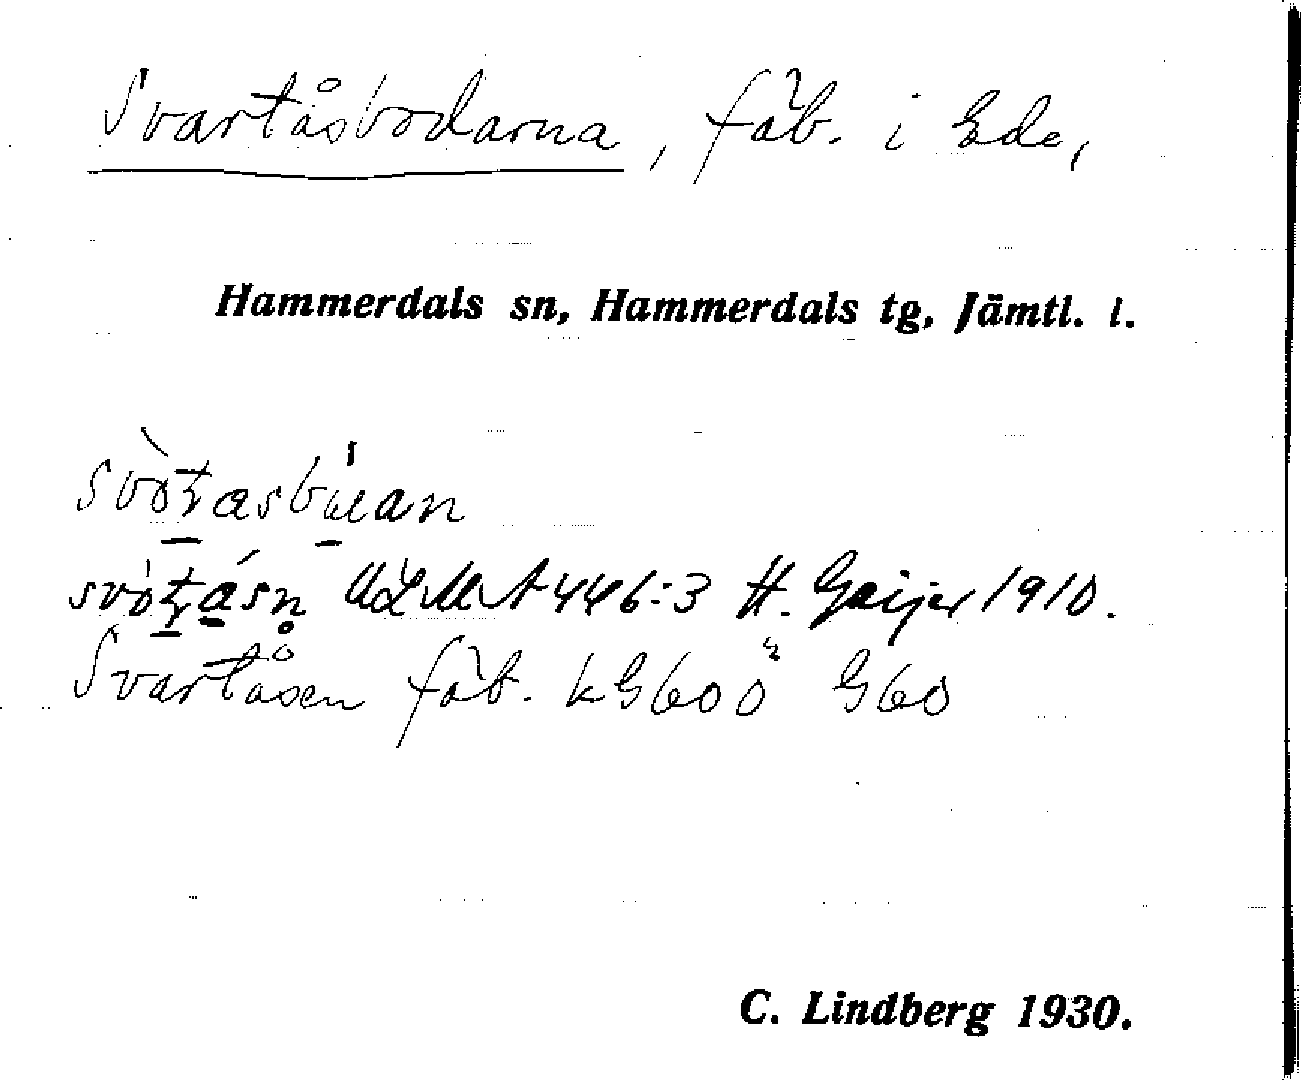 Svartåsbodarna, fäb. i Ede,
Hammerdals sn, Hammerdals tg, Jämtl. l.
ULMA 446:3 H. Geijer 1910.
Svartåsen fäb. kG600ö G60
C. Lindberg 1930.